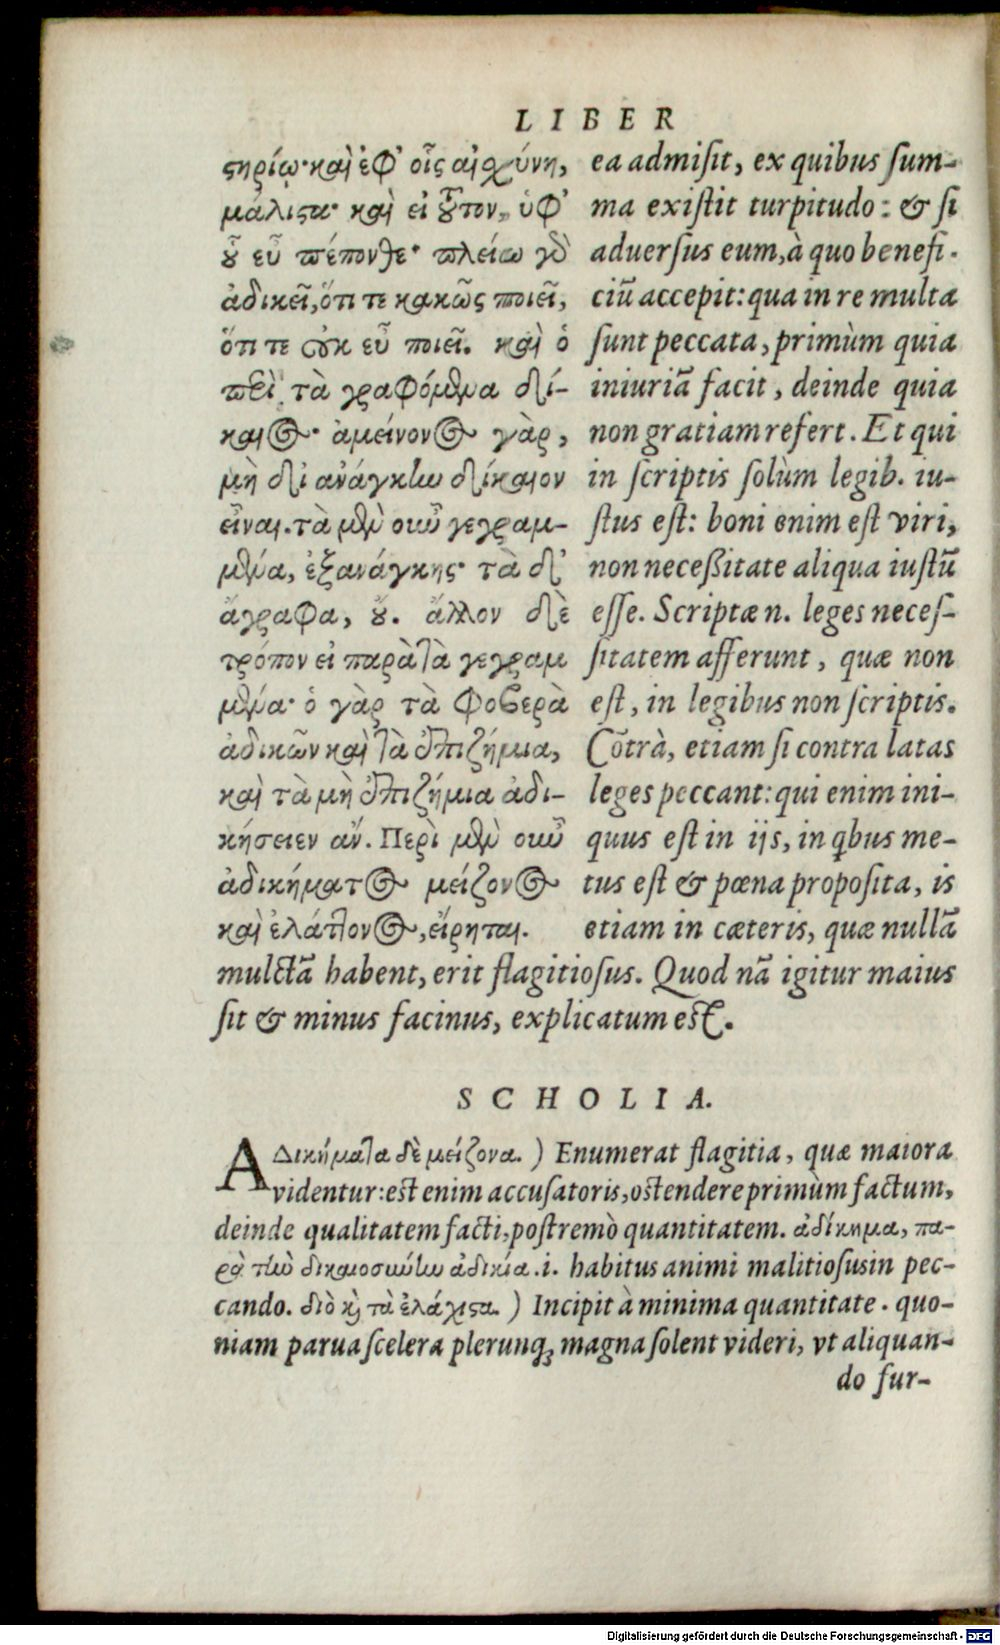 LIBER
ϛηρίῳ· καὶ ἐφ' οἷς αἰχύνη,
μάλιϛα· καὶ εἰ τοῦτον, ὑφ'
οὗ εὖ πέπονθε· πλείω γὰρ
ἀδικεῖ, ὅτι τε κακῶς ποιεῖ,
ὅτι τε οὐκ εὖ ποιεῖ. καὶ ὁ
περὶ τὰ γραφόμενα δί-
καιος· ἀμείνονος γὰρ,
μὴ δι' ἀνάγκην δίκαιον
εἶναι. τὰ μὲν οὖν γεγραμ-
μένα, ἐξανάγκης· τὰ δ'
ἄγραφα, οὔ. ἄλλον δὲ
τρόπον εἰ παρὰ τὰ γεγραμ
μένα· ὁ γὰρ τὰ φοβερὰ
ἀδικῶν καὶ τὰ ἐπιζήμια,
καὶ τὰ μὴ ἐπιζήμια ἀδι-
κήσειεν ἄν. Περὶ μὲν οὖν
ἀδικήματος μείζονος
καὶ ἐλάττονος, εἴρηται.
ea admiſit, ex quibus ſum-
ma exiſtit turpitudo: & ſi
aduerſus eum, à quo benefi-
ciũ accepit: qua in re multa
ſunt peccata, primùm quia
iniuriã facit, deinde quia
non gratiam refert. Et qui
in ſcriptis ſolùm legib. iu-
ſtus eſt: boni enim eſt viri,
non neceßitate aliqua iuſtũ
eſſe. Scriptæ n. leges neceſ-
ſitatem afferunt, quæ non
eſt, in legibus non ſcriptis.
Cõtrà, etiam ſi contra latas
leges peccant: qui enim ini-
quus eſt in ijs, in qbus me-
tus eſt & pœna propoſita, is
etiam in cæteris, quæ nullã
mulctã habent, erit flagitioſus. Quod nã igitur maius
ſit & minus facinus, explicatum eſt.
SCHOLIA.
ΑΔικήματα δὲ μείζονα.) Enumerat flagitia, quæ maiora
videntur: eſt enim accuſatoris, oſtendere primùm factum,
deinde qualitatem facti, poſtremò quantitatem. ἀδίκημα, πα-
ρὰ τὴν δικαιοσύνην ἀδικία .i. habitus animi malitioſus in pec-
cando. διὸ καὶ τὰ ἐλάχιϛα.) Incipit à minima quantitate. quo-
niam parua ſcelera plerunq; magna ſolent videri, vt aliquan-
do fur-
Digitalisierung gefördert durch die Deutsche Forschungsgemeinschaft - DFG